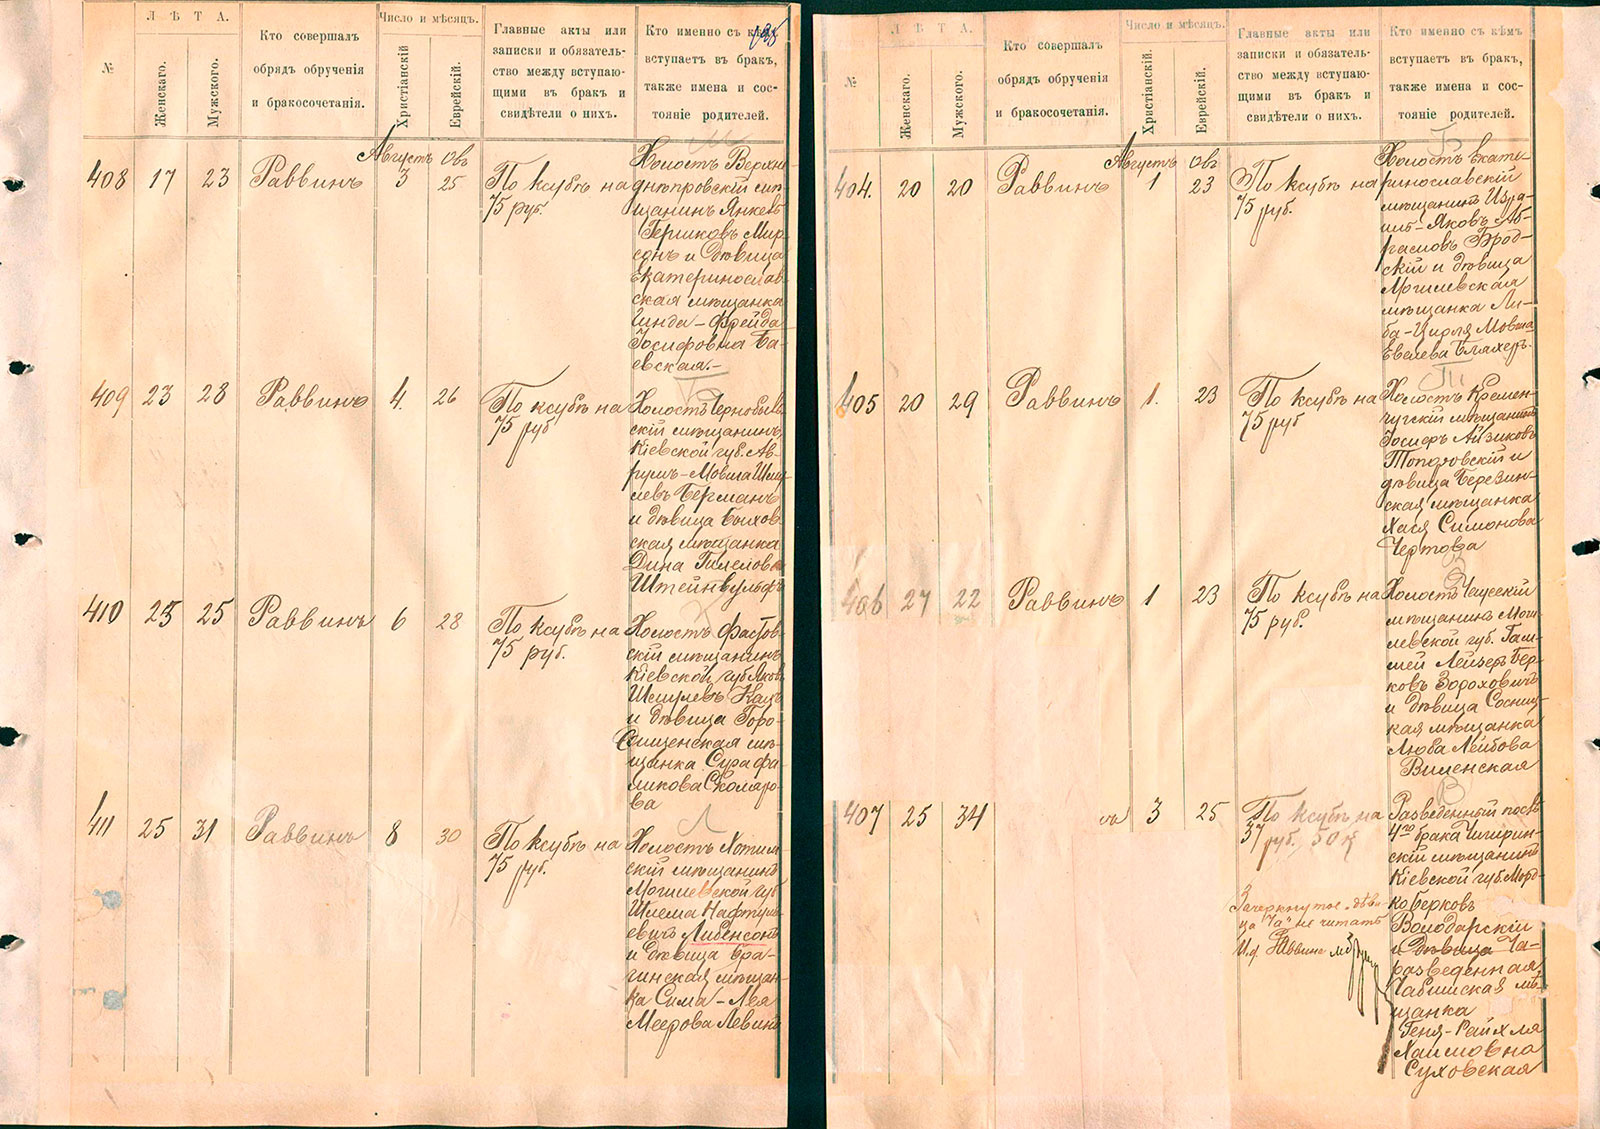 №
Л Ѣ Т А.
Женскаго.
Мужского.
Кто совершалъ
обрядъ обрученія
и бракосочетанія.
Число и мѣсяцъ.
Христіанскій
Еврейскій.
Главные акты или
записки и обязатель-
ство между вступаю-
щими въ бракъ и
свидѣтели о нихъ.
Кто именно съ кѣмъ
вступаетъ въ бракъ,
также имена и сос-
тояніе родителей.
Августъ Овъ
408 17 23 Раввинъ 3 25
По ксубѣ на
75 руб.
Холостъ Верхне-
днѣпровскій мѣ-
щанинъ Янкель
Гершковъ Мир-
сонъ и дѣвица
Екатеринослав-
ская мѣщанка
Гинда-Фрейда
Іосифовна Ба-
евская.-
409 23 28 Раввинъ 4. 26
По ксубѣ на
75 руб
Холостъ Чернобыль-
скій мѣщанинъ
Кіевской губ. Ав-
румъ-Мовша Шму-
левъ Берманъ
и дѣвица Быхов-
ская мѣщанка
Дина Гилелова
Штейнвульфъ
410 25 25 Раввинъ 6 28
По ксубѣ на
75 руб.
Холостъ Фастов-
скій мѣщанинъ
Кіевской губ Яковъ
Шмулевъ Кацъ
и дѣвица Горо-
дищенская мѣ-
щанка Сура Фа-
ликова Школяро-
ва
411 25 31 Раввинъ 8 30
По ксубѣ на
75 руб.
Л
Холостъ Хотим-
скій мѣщанинъ
Могилевской губ
Шлема Нафтуль-
евичъ Либенсонъ
и дѣвица Бра-
гинская мѣщан-
ка Сима-Лея
Меерова Левинъ
№
Л Ѣ Т А.
Женскаго.
Мужского.
Кто совершалъ
обрядъ обрученія
и бракосочетанія.
Число и мѣсяцъ.
Христіанскій
Еврейскій.
Главные акты или
записки и обязатель-
ство между вступаю-
щими въ бракъ и
свидѣтели о нихъ.
Кто именно съ кѣмъ
вступаетъ въ бракъ,
также имена и сос-
тояніе родителей.
Августъ Овъ
404. 20 20 Раввинъ 1 23
По ксубѣ на
75 руб.
Холостъ Екате-
ринославскій
мѣщанинъ Изра-
иль-Яковъ Аб-
рамовъ Брод-
скій и дѣвица
Могилевская
мѣщанка Ли-
ба-Цирля Мовша
Евелева Бляхеръ.
405 20 29 Раввинъ 1. 23
По ксубѣ на
75 руб
Холостъ Кремен-
чугскій мѣщанинъ
Іосифъ Айзиковъ
Топоровскій и
дѣвица Березин-
ская мѣщанка
Хася Симонова
Чертова
406 27 22 Раввинъ 1 23
По ксубѣ на
75 руб.
Холостъ Чаусскій
мѣщанинъ Моги-
левской губ. Гам-
шей Лейзеръ Бер-
ковъ Зороховичъ
и дѣвица Сосниц-
кая мѣщанка
Люба Лейбова
Виленская
407 25 34 3 25
По ксубѣ на
37 руб. 50 к
В
Разведенный послѣ
4го брака Чигирин-
скій мѣщанинъ
Кіевской губ. Морд-
ко Берковъ
Володарскій
и дѣвица Ча-
разведенная
Чабишская мѣ-
щанка
Геня-Райхля
Хаимовна
Суховская
Зачеркнутое „дѣви-
ца Ча" не читать
И.д. Раввина